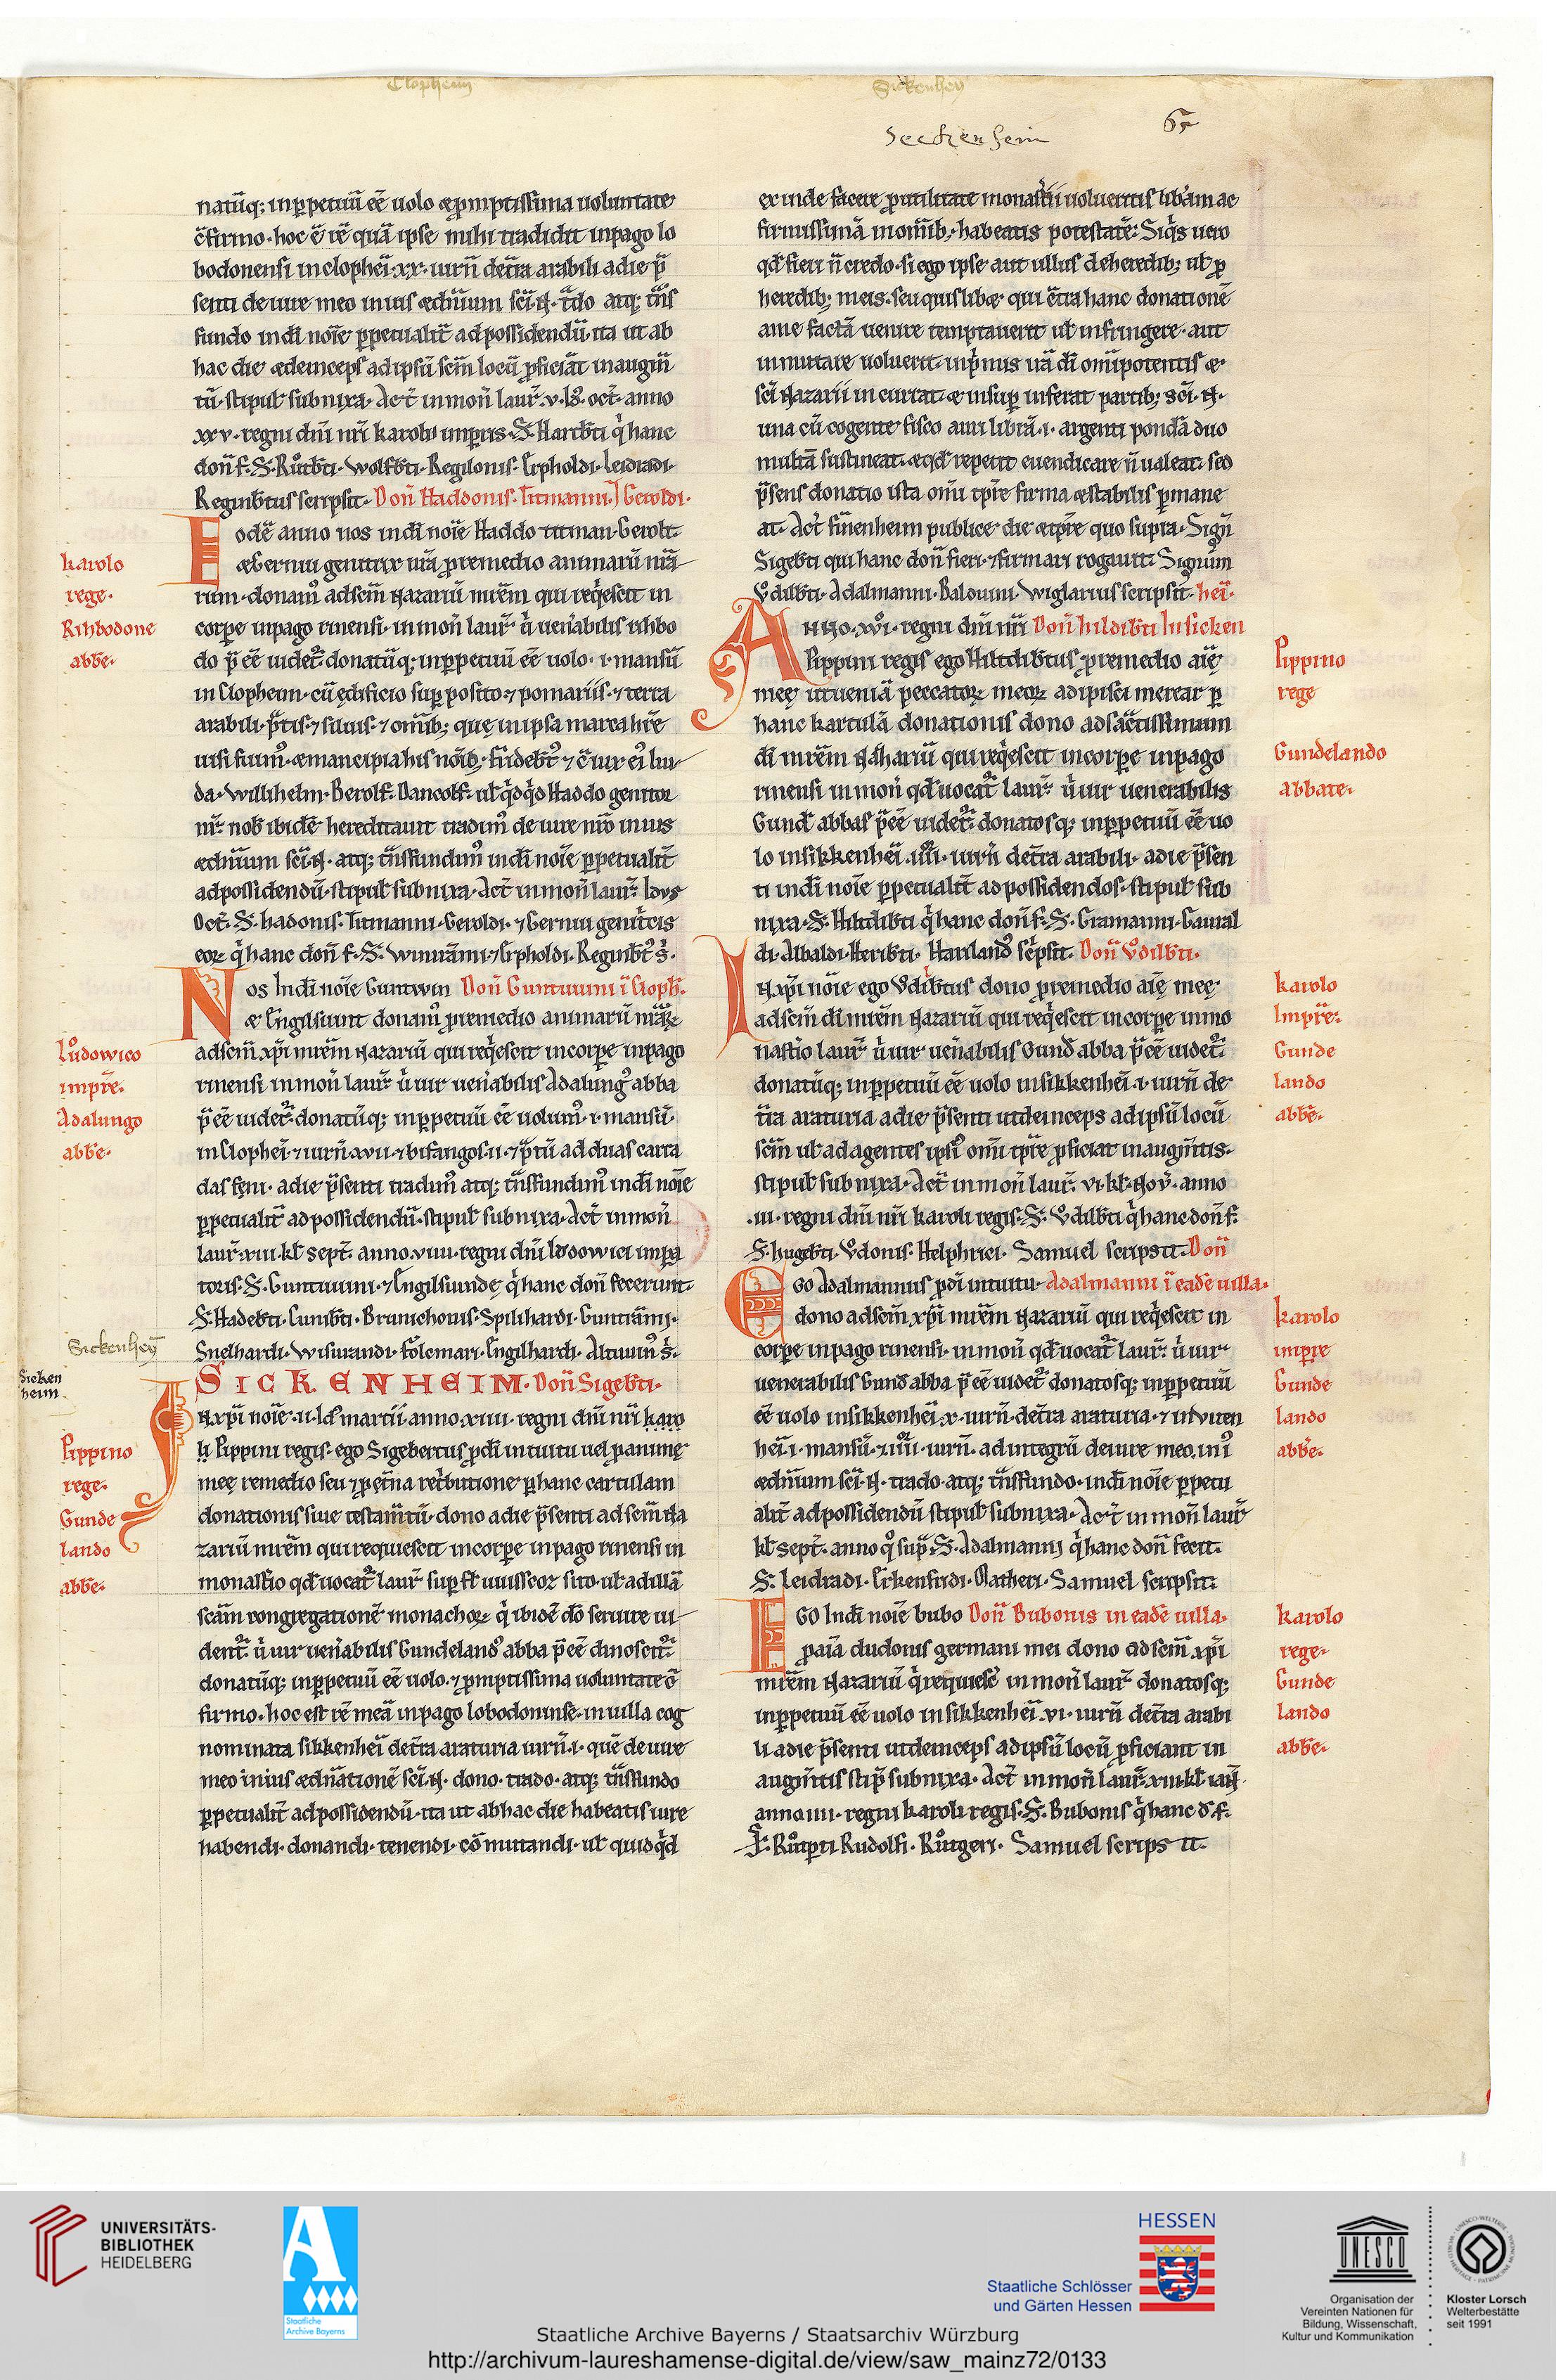 Clopheim
Sickenhey
Seckenheim
65
natū q; inp̱petuū eē uolo & ꝓmptissima uoluntate
c̄firmo. hoc ē rē quā ipse mihi tradidit in pago lo
bodonensi in clophei̅. xx. iurn̄ de t̄ra arabili a die p̄
senti de iure meo in ius & dn̄ium sc̄i. N. t̄do atq; t̄ns
fundo in di̅ noīe p̱petualit̄ ad possidendū. ita ut ab
hac die & deinceps ad ipsū sc̄m locū ꝓficiāt in augm̄
tū. stipul̄ subnixa. Act̄ in mon̄ laur̄. v. id̄. oct̄. anno
xxv. regni dn̄i nr̄i karoli imp̱ris. S. Hartb̄ti q̇ hanc
don̄ f. S. Ruͦtb̄ti. Wolfb̄ti. Regilonis. Erpholdi. Leidradi.
Reginb̄tus scripsit. Don̄ Haddonis. Titmanni.] Geroldi.
Eodē anno nos in di̅ noīe Haddo titman. Gerolt.
& Gernui genitrix nr̄a ꝓ remedio animarū nr̄a
rum. donam᷒ ad sc̄m Nazariū mr̄em qui req̇escit in
corp̱e in pago rinensi. in mon̄ laur̄. u̇ uen̄abilis rihbo
do p̄ eē uidet᷑. donatū q; in p̱petuū eē uolo. i. mansū
in Clopheim. cū ędificio sup̱posito. ⁊ pomariis. ⁊ terra
arabili. p̄tis. ⁊ siluis. ⁊ om̄ib; quę in ipsa marca hr̄e
uisi sum᷒. & mancipia his nōib;. Fridebt̄ ⁊ c̄iux ei᷒ liu
da. Willihelm. Berolf. Dancolf. ul̄ q̇dq̇d Haddo genitor
nr̄. nob̄ ibidē hereditauit tradim᷒ de iure nr̄o in ius
& dn̄ium sc̄i. N. atq; t̄nsfundim᷒ in di̅ noīe p̱petualit̄
ad possidendū. stipul̄ subnixa. Act̄ in mon̄ laur̄. Idus
Oct̄. S. hadonis. Titmanni. Geroldi. ⁊ Gernui genit̄cis
eoꝝ q̇ hanc don̄ f. S. Winirāmi. ⁊ Erpholdi. Reginbt̄᷒ s̄.
Nos In di̅ noīe Guntwin Don̄ Guntuuini ī Cloph̄.
& Engilsuint donam᷒ ꝓ remedio animarū nr̄aꝝ
ad sc̄m xp̄i mr̄em Nazariū qui req̇escit in corp̱e in pago
rinensi in mon̄ laur̄. u̇ uir uen̄abilis Adalung᷒ abba
p̄ eē uidet᷑. donatū q; in p̱petuū eē uolum᷒. i. mansū.
in Clophei̅. ⁊ iurn̄. xvii. ⁊ bifangos. ii. ⁊ p̄tū ad duas carra
das feni. a die p̄senti tradim᷒ atq; t̄nsfundim᷒ in di̅ noīe
p̱petualit̄ ad possidendū. stipul̄ subnixa. Act̄ in mon̄
laur̄. xiii. kl̄ sept̄. anno. viiii. regni dn̄i lodowici imp̱a
toris. S. Guntuuini. ⁊ Engilsuindę q̇ hanc don̄ fecerunt.
S. Hadeb̄ti. Cunib̄ti. Brunichonis. Spilihardi. Guntrāmi.
Snelhardi. Wisurandi. Folcmari. Engilhardi. Altuuin᷒ s̄.
SICKENHEIM. Don̄ Sigeb̄ti.
In xp̄i noīe. ii. id᷒ martii. anno. xiiii. regni dn̄i nr̄i karo
li Pippini regis. ego Sigebertus ꝓ di̅ intuitu uel ꝓ animę
meę remedio seu ⁊ ꝓ et̄na ret̄butione p̱ hanc cartulam
donationis siue testam̄tū. dono a die p̄senti ad sc̄m Na
zariū mr̄em qui requiescit in corp̱e in pago rinensi in
monast̄io qd̄ uocat᷑ laur̄. sup̱ fl̄ uuisscoz sito. ul̄ ad illā
sc̄am congregationē monachoꝝ q̇ ibidē do̅ seruire ui
dent᷑. u̇ uir uen̄abilis Gundeland᷒ abba p̄ eē dinoscit᷑.
donatū q; in p̱petuū eē uolo. ⁊ ꝓmptissima uoluntate c̄
firmo. hoc est rē meā in pago lobodoninse. in uilla cog
nominata sikkenhei̅ de t̄ra araturia iurn̄. i. quē de iure
meo in ius & dn̄ationē sc̄i. N. dono. trado. atq; t̄nsfundo
p̱petualit̄ ad possidendū. ita ut ab hac die habeatis iure
habendi. donandi. tenendi. cōmutandi. ul̄ quidq̇d
karolo
rege.
Rihbodone
abbe.
Luͦdowico
impr̄e.
Adalungo
abb̄e.
Sickenhey̅
Sicken
heim
Pippino
rege.
Gunde
lando
abb̄e.
exinde facere ꝓ utilitate monast̄ii uolueritis. lib̄am ac
firmissimā in om̄ib; habeatis potestatē. Siq̇s uero
qd̄ fieri n̄ credo. si ego ipse aut ullus de heredib; ul̄ ꝓ
heredib; meis. seu quislib& qui c̄tra hanc donationē
a me factā uenire temptauerit ul̄ infringere. aut
inmutare uoluerit. inp̄mis irā di̅ om̄ipotentis &
sc̄i Nazarii incurrat. & insup̱ inferat partib; sc̄i. N.
una cū cogente fisco auri librā. i. argenti pondā duo
multā sustineat. & qd̄ repetit euendicare n̄ ualeat. sed
p̄sens donatio ista om̄i tp̄re firma & stabilis p̱mane
at. Act̄ sin̄enheim publice die & tp̄re quo supra. Sign̄
Sigeb̄ti qui hanc don̄ fieri. ⁊ firmari rogauit. Signūm
Vͦdilb̄ti. Adalmanni. Balduuini. Wiglarius scripsit. hei̅.
Anno. xvi᷒. regni dn̄i nr̄i Don̄ hildib̄ti In sicken
Pippini regis ego Hiltdib̄tus ꝓ remedio aīę
meę ut ueniā peccatoꝝ meoꝝ adipisci merear p̱
hanc kartulā donationis dono ad sāctissimum
di̅ mr̄em Nazhariū qui req̇escit in corp̱e in pago
rinensi in mon̄ qd̄ uocat᷑ laur̄. u̇ uir uenerabilis
Gund̄ abbas p̄ eē uidet᷑. donatosq; in p̱petuū eē uo
lo in sikkenhei̅. iiii᷒. iurn̄ de t̄ra arabili. a die p̄sen
ti in di̅ noīe p̱petualit̄ ad possidendos. stipul̄ sub
nixa. S. Hiltdib̄ti q̇ hanc don̄ f. S. Gramanni. Gauual
di. Albaldi. Herib̄ti. Hariland᷒ sc̄psit. Don̄ Vͦdilb̄ti.
In xp̄i noīe ego Vͦdilb̄tus dono ꝓ remedio aīę meę
ad sc̄m di̅ mr̄em Nazariū qui req̇escit in corp̱e in mo
nast̄io laur̄. u̇ uir uen̄abilis Gund̄ abba p̄ eē uidet᷑.
donatū q; in p̱petuū eē uolo in sikkenhei̅. i. iurn̄ de
t̄ra araturia a die p̄senti ut deinceps ad ipsū locū
sc̄m ul̄ ad agentes ipsi᷒ om̄i tp̄re ꝓficiat in augm̄tis.
stipul̄ subnixa. Act̄ in mon̄ laur̄. vi. kl̄. Nov̄. anno
.iii. regni dn̄i nr̄i karoli regis. S. Vͦdilb̄ti q̇ hanc don̄ f.
S. hugeb̄ti. Vͦdonis. Helphrici. Samuel scripsit. Don̄
Ego Adalmannus ꝓ di̅ intuitu. Adalmanni ī eadē uilla.
dono ad sc̄m xp̄i mr̄em Nazariū qui req̇escit in
corp̱e in pago rinensi. in mon̄ qd̄ uocat᷑ laur̄. u̇ uir
uenerabilis Gund̄ abba p̄ eē uidet᷑. donatosq; in p̱petuū
eē uolo in sikkenhei̅. x. iurn̄. de t̄ra araturia. ⁊ in viten
hei̅. i. mansū. ⁊ iiii᷒. iurn̄. ad integrū de iure meo. in i᷒
& dn̄ium sc̄i. N. trado. atq; t̄nsfundo. in di̅ noīe p̱petu
alit̄ ad possidendū stipul̄ subnixa. Act̄ in mon̄ laur̄
kl̄ sept̄. anno q᷒ sup̄. S. Adalmanni q̇ hanc don̄ fecit.
S. Leidradi. Erkenfridi. Matheri. Samuel scripsit.
Ego In di̅ noīe bubo Don̄ Bubonis in eadē uilla.
ꝓ aīa dudonis germani mei dono ad sc̄m xp̄i
mr̄em Nazariū q̇ requiesc̄ in mon̄ laur̄. donatosq;
in p̱petuū eē uolo in sikkenhei̅. vi. iurn̄ de t̄ra arabi
li a die p̄senti ut deinceps ad ipsū locū ꝓficiant in
augm̄tis stip̄ subnixa. Act̄ in mon̄ laur̄. xviii. kl̄ ian̄.
anno iiii. regni karoli regis. S. Bubonis q̇ hanc d̄. f.
S. Ruͦtp̱ti Rudolfi. Ruͦtgeri. Samuel scripsit.
Pippino
rege
Gundelando
abbate.
karolo
Impr̄e.
Gunde
lando
abb̄e.
karolo
imp̱re
Gunde
lando
abb̄e.
karolo
rege.
Gunde
lando
abb̄e.
UNIVERSITÄTS-
BIBLIOTHEK
HEIDELBERG
Staatliche
Archive Bayerns
HESSEN
Staatliche Schlösser
und Gärten Hessen
UNESCO
Organisation der
Vereinten Nationen für
Bildung, Wissenschaft,
Kultur und Kommunikation
Kloster Lorsch
Welterbestätte
seit 1991
Staatliche Archive Bayerns / Staatsarchiv Würzburg
http://archivum-laureshamense-digital.de/view/saw_mainz72/0133